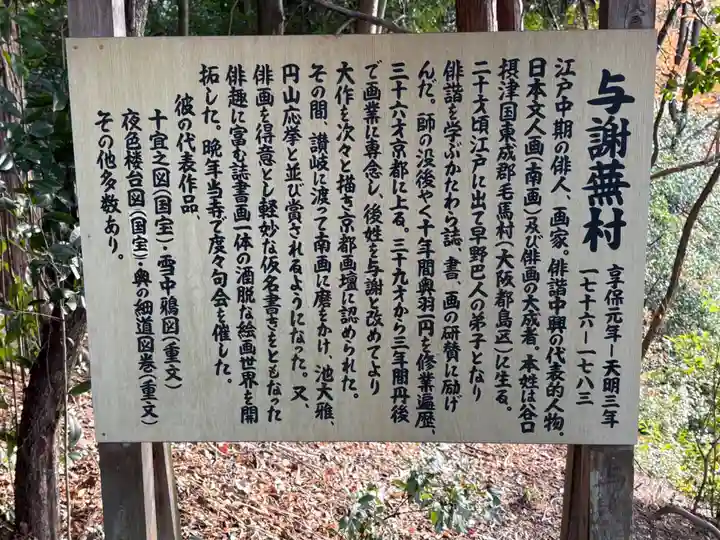 与謝蕪村
享保元年－天明三年
一七十六－一七八三
江戸中期の俳人、画家。俳諧中興の代表的人物。
日本文人画(南画)及び俳画の大成者。本姓は谷口
摂津国東成郡毛馬村(大阪都島区)に生る。
二十才頃江戸に出て早野巴人の弟子となり
俳諧を学ぶかたわら誌、書、画の研賛に励げ
んだ。師の没後やく十年間奥羽一円を修業遍歴、
三十六才京都に上る。三十九才から三年間丹後
で画業に専念し、後姓を与謝と改めてより
大作を次々と描き京都画壇に認められた。
その間、讃岐に渡って南画に磨をかけ、池大雅、
円山応挙と並び賞されるようになった。又、
俳画を得意とし軽妙な仮名書きをともなった
俳趣に富む誌書画一体の洒脱な絵画世界を開
拓した。晩年当寺で度々句会を催した。
彼の代表作品、
十宜之図(国宝)・雪中鴉図(重文)
夜色楼台図(国宝)・奥の細道図巻(重文)
その他多数あり。